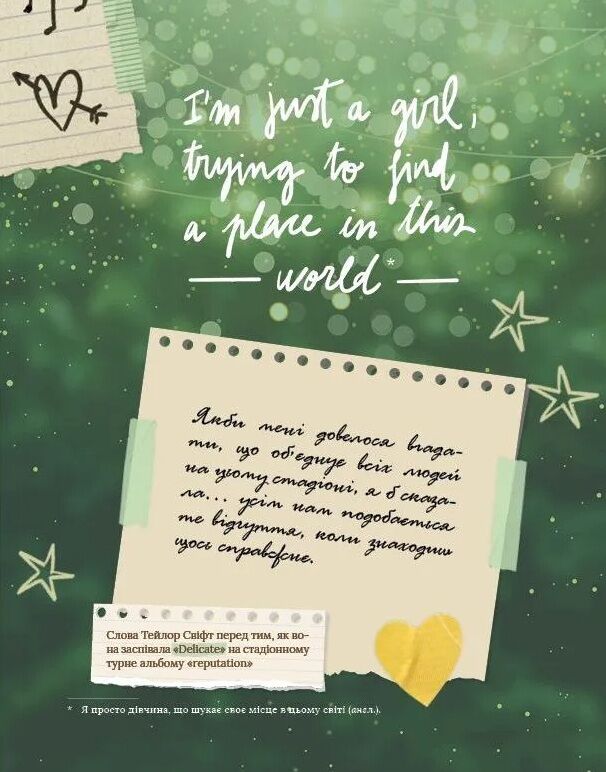 I'm just a girl,
trying to find
a place in this
world*
Якби мені довелося вгада-
ти, що об'єднує всіх людей
на цьому стадіоні, я б сказа-
ла... усім нам подобається
те відчуття, коли знаходиш
щось справжнє.
Слова Тейлор Свіфт перед тим, як во-
на заспівала «Delicate» на стадіонному
турне альбому «reputation»
* Я просто дівчина, що шукає своє місце в цьому світі (англ.).